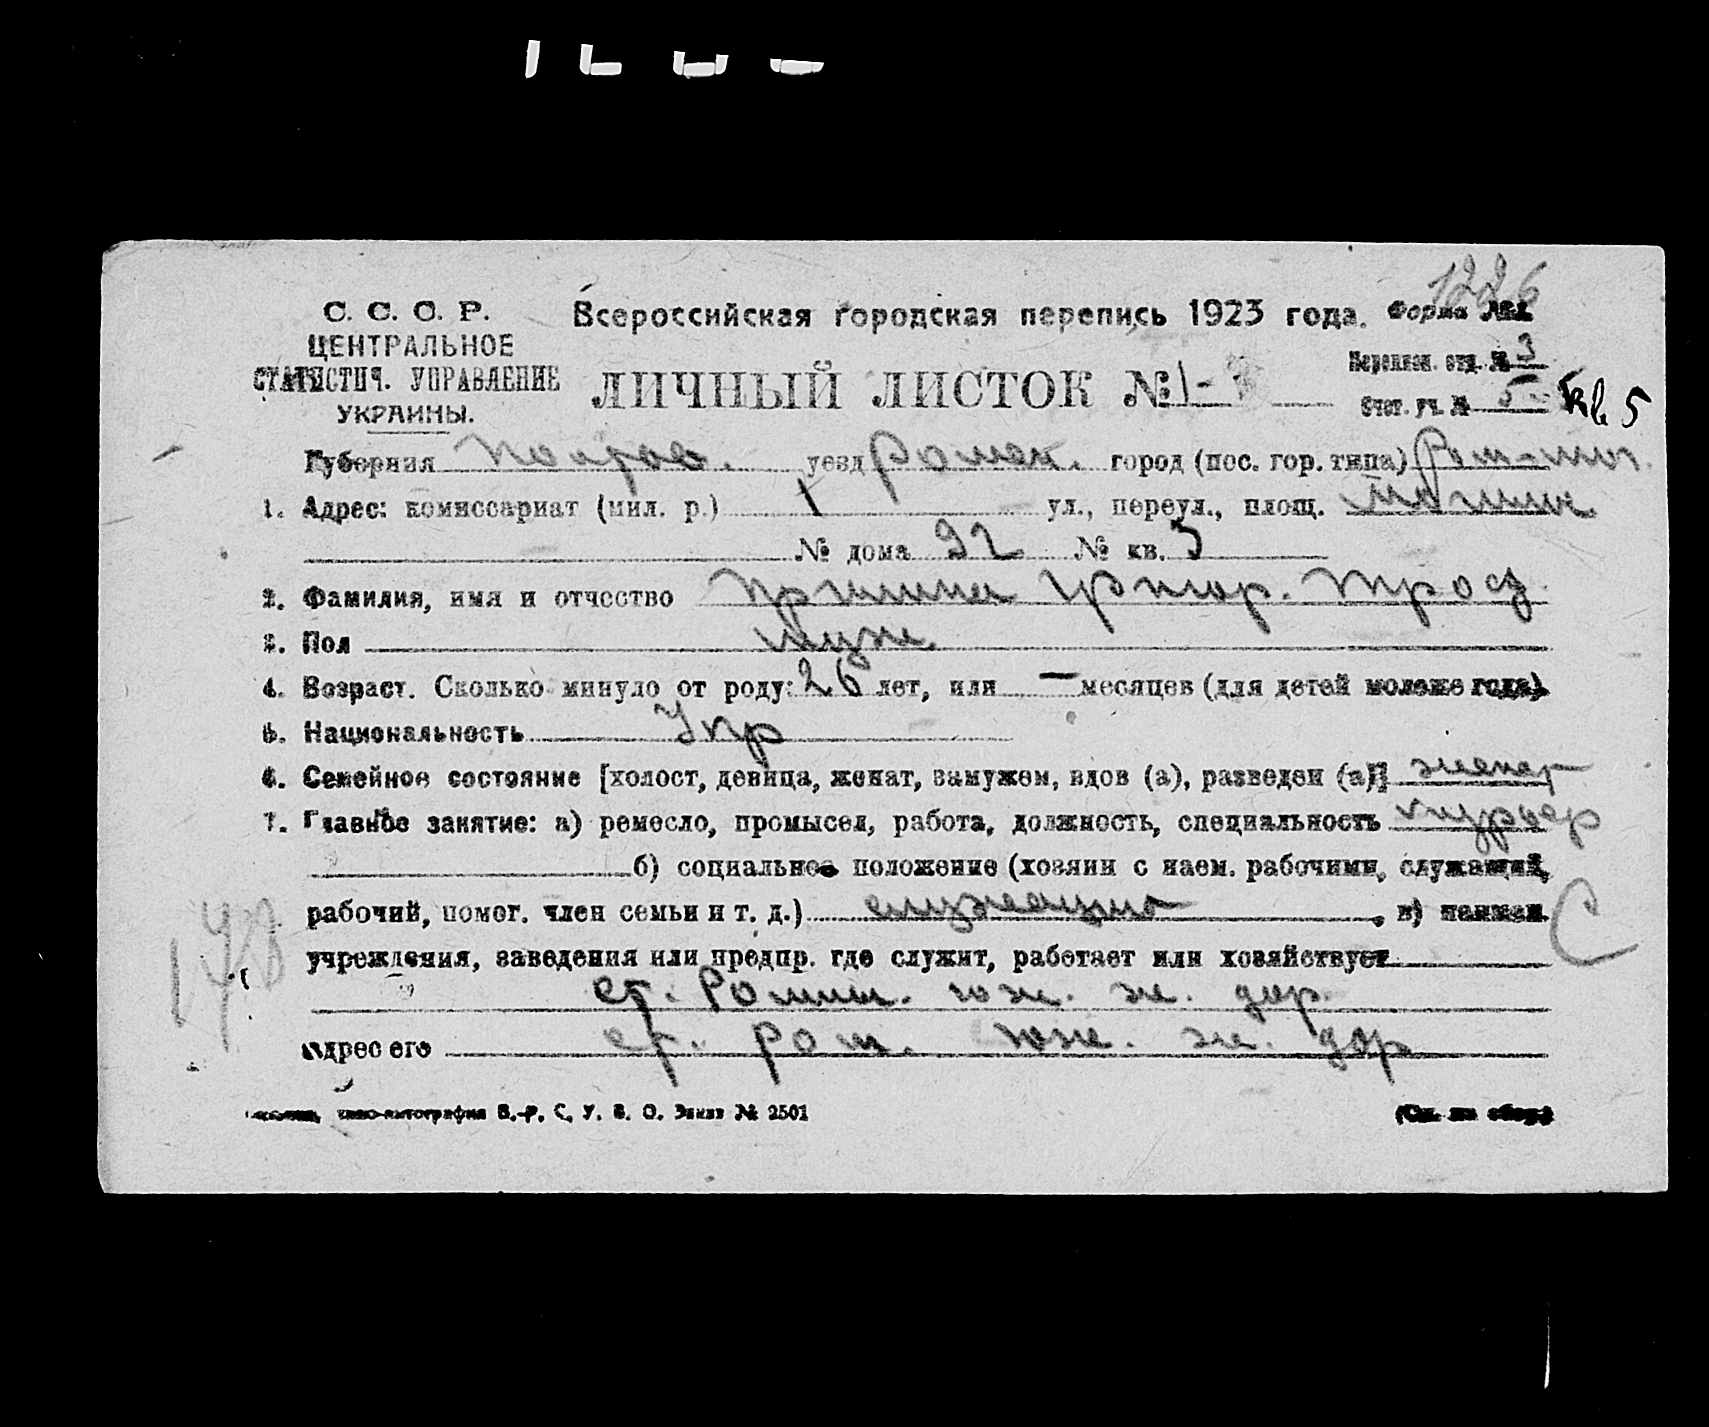 1226
С. С. С. Р.
ЦЕНТРАЛЬНОЕ
СТАТИСТИЧ. УПРАВЛЕНИЕ
УКРАИНЫ.
Всероссийская городская перепись 1923 года. Форма №1
ЛИЧНЫЙ ЛИСТОК № 1-
Переписн. отд. № 3
Счет. уч. № 5 кв 5
Губерния Полтов. уезд Ромен. город (пос. гор. типа) Ромны.
1. Адрес: комиссариат (мил. р.) 1 ул., переул., площ.
№ дома 92 № кв. 5
2. Фамилия, имя и отчество Григор.
3. Пол муж.
4. Возраст. Сколько минуло от роду: 26 лет, или — месяцев (для детей моложе года).
5. Национальность Укр
6. Семейное состояние [холост, девица, женат, замужем, вдов (а), разведен (а)] женат
7. Главное занятие: а) ремесло, промысел, работа, должность, специальность курьер
б) социальное положение (хозяин с наем. рабочими, служащий,
рабочий, помог. член семьи и т. д.) служащий, в) наимен. С
учреждения, заведения или предпр. где служит, работает или хозяйствует
ст. Ромны. юж. ж. дор.
Адрес его ст. Ром. Юж. ж. дор
В.-Р. С. У. В. О. Заказ № 2501
(См. на обор.)